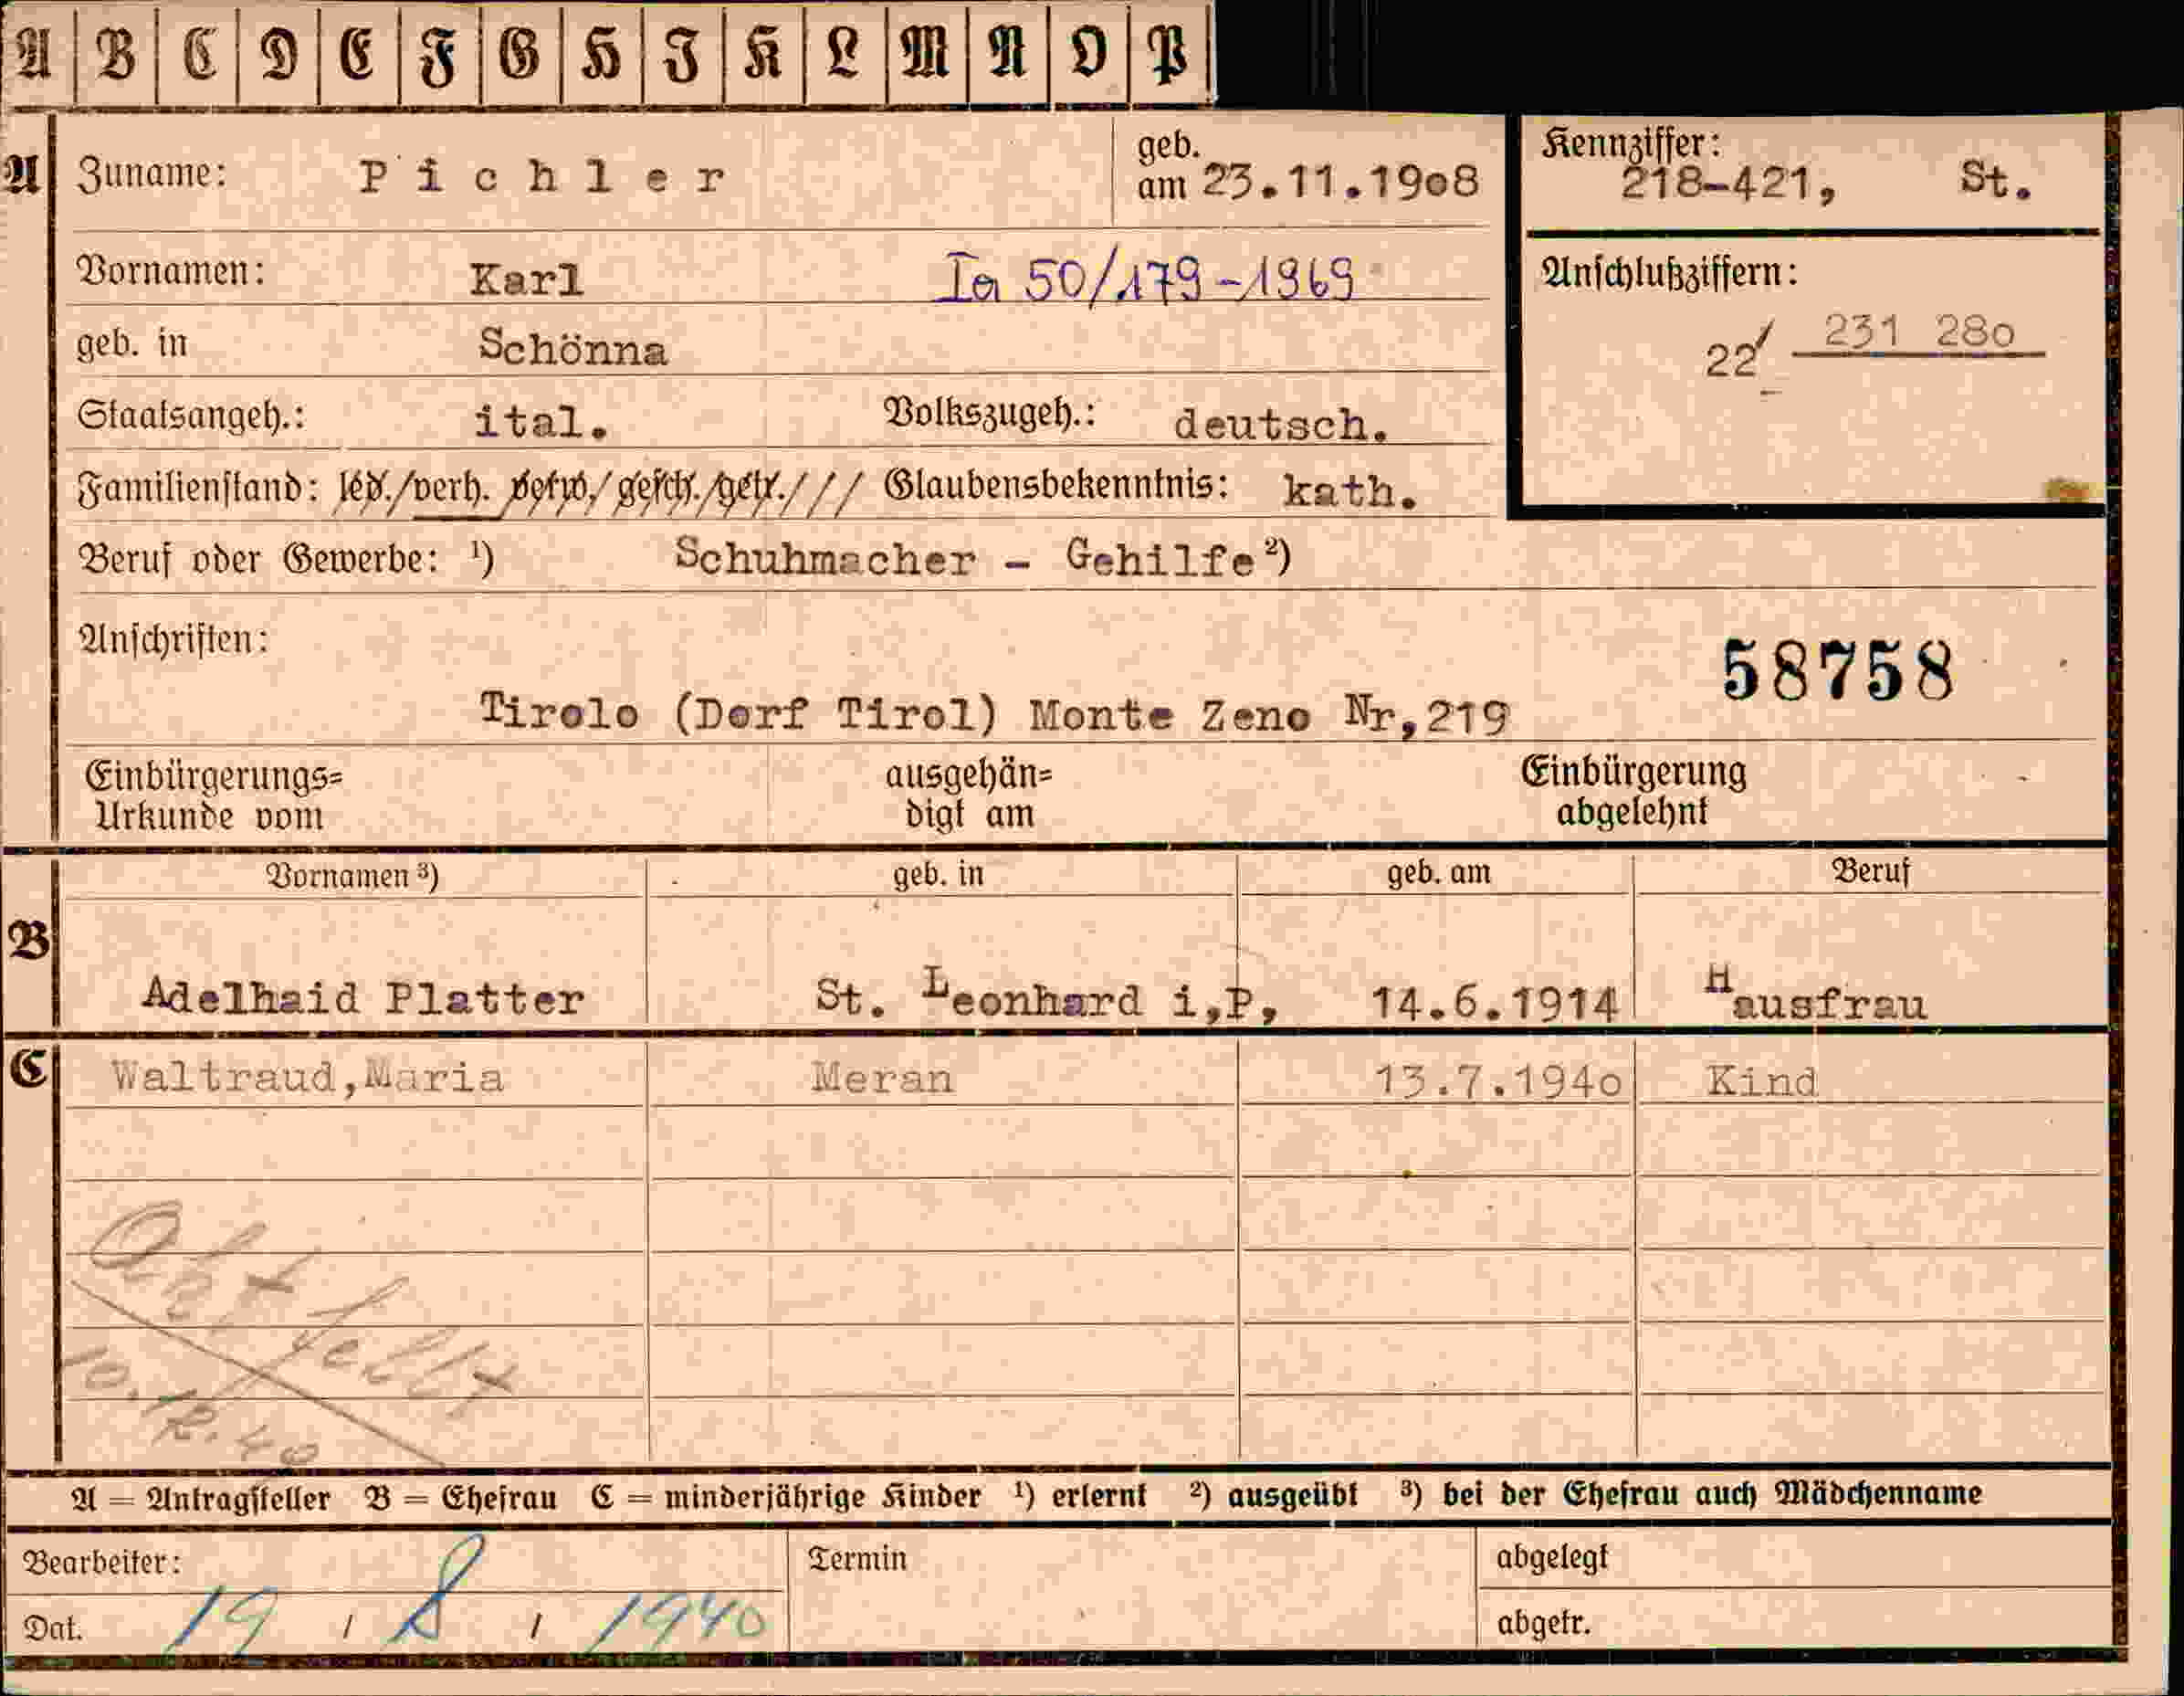 A B C D E F G H I K L M N O P
A Zuname: Pichler geb. am 23.11.1908 Kennziffer: 218-421, St.
Vornamen: Karl Ia 50/179-1969 Anschlußziffern:
geb. in Schönna 22/ 231 280
Staatsangeh.: ital. Volkszugeh.: deutsch.
Familienstand: led./verh. verw./gesch./getr./// Glaubensbekenntnis: kath.
Beruf oder Gewerbe: ¹) Schuhmacher - Gehilfe ²)
Anschriften: 58758
Tirolo (Dorf Tirol) Monte Zeno Nr,219
Einbürgerungs= ausgehän= Einbürgerung
Urkunde vom digt am abgelehnt
Vornamen ³) geb. in geb. am Beruf
B Adelhaid Platter St. Leonhard i,P, 14.6.1914 Hausfrau
C Waltraud,Maria Meran 13.7.1940 Kind
10.12.40
A = Antragsteller B = Ehefrau C = minderjährige Kinder ¹) erlernt ²) ausgeübt ³) bei der Ehefrau auch Mädchenname
Bearbeiter: Termin abgelegt
Dat. 19 / 8 / 1940 abgetr.